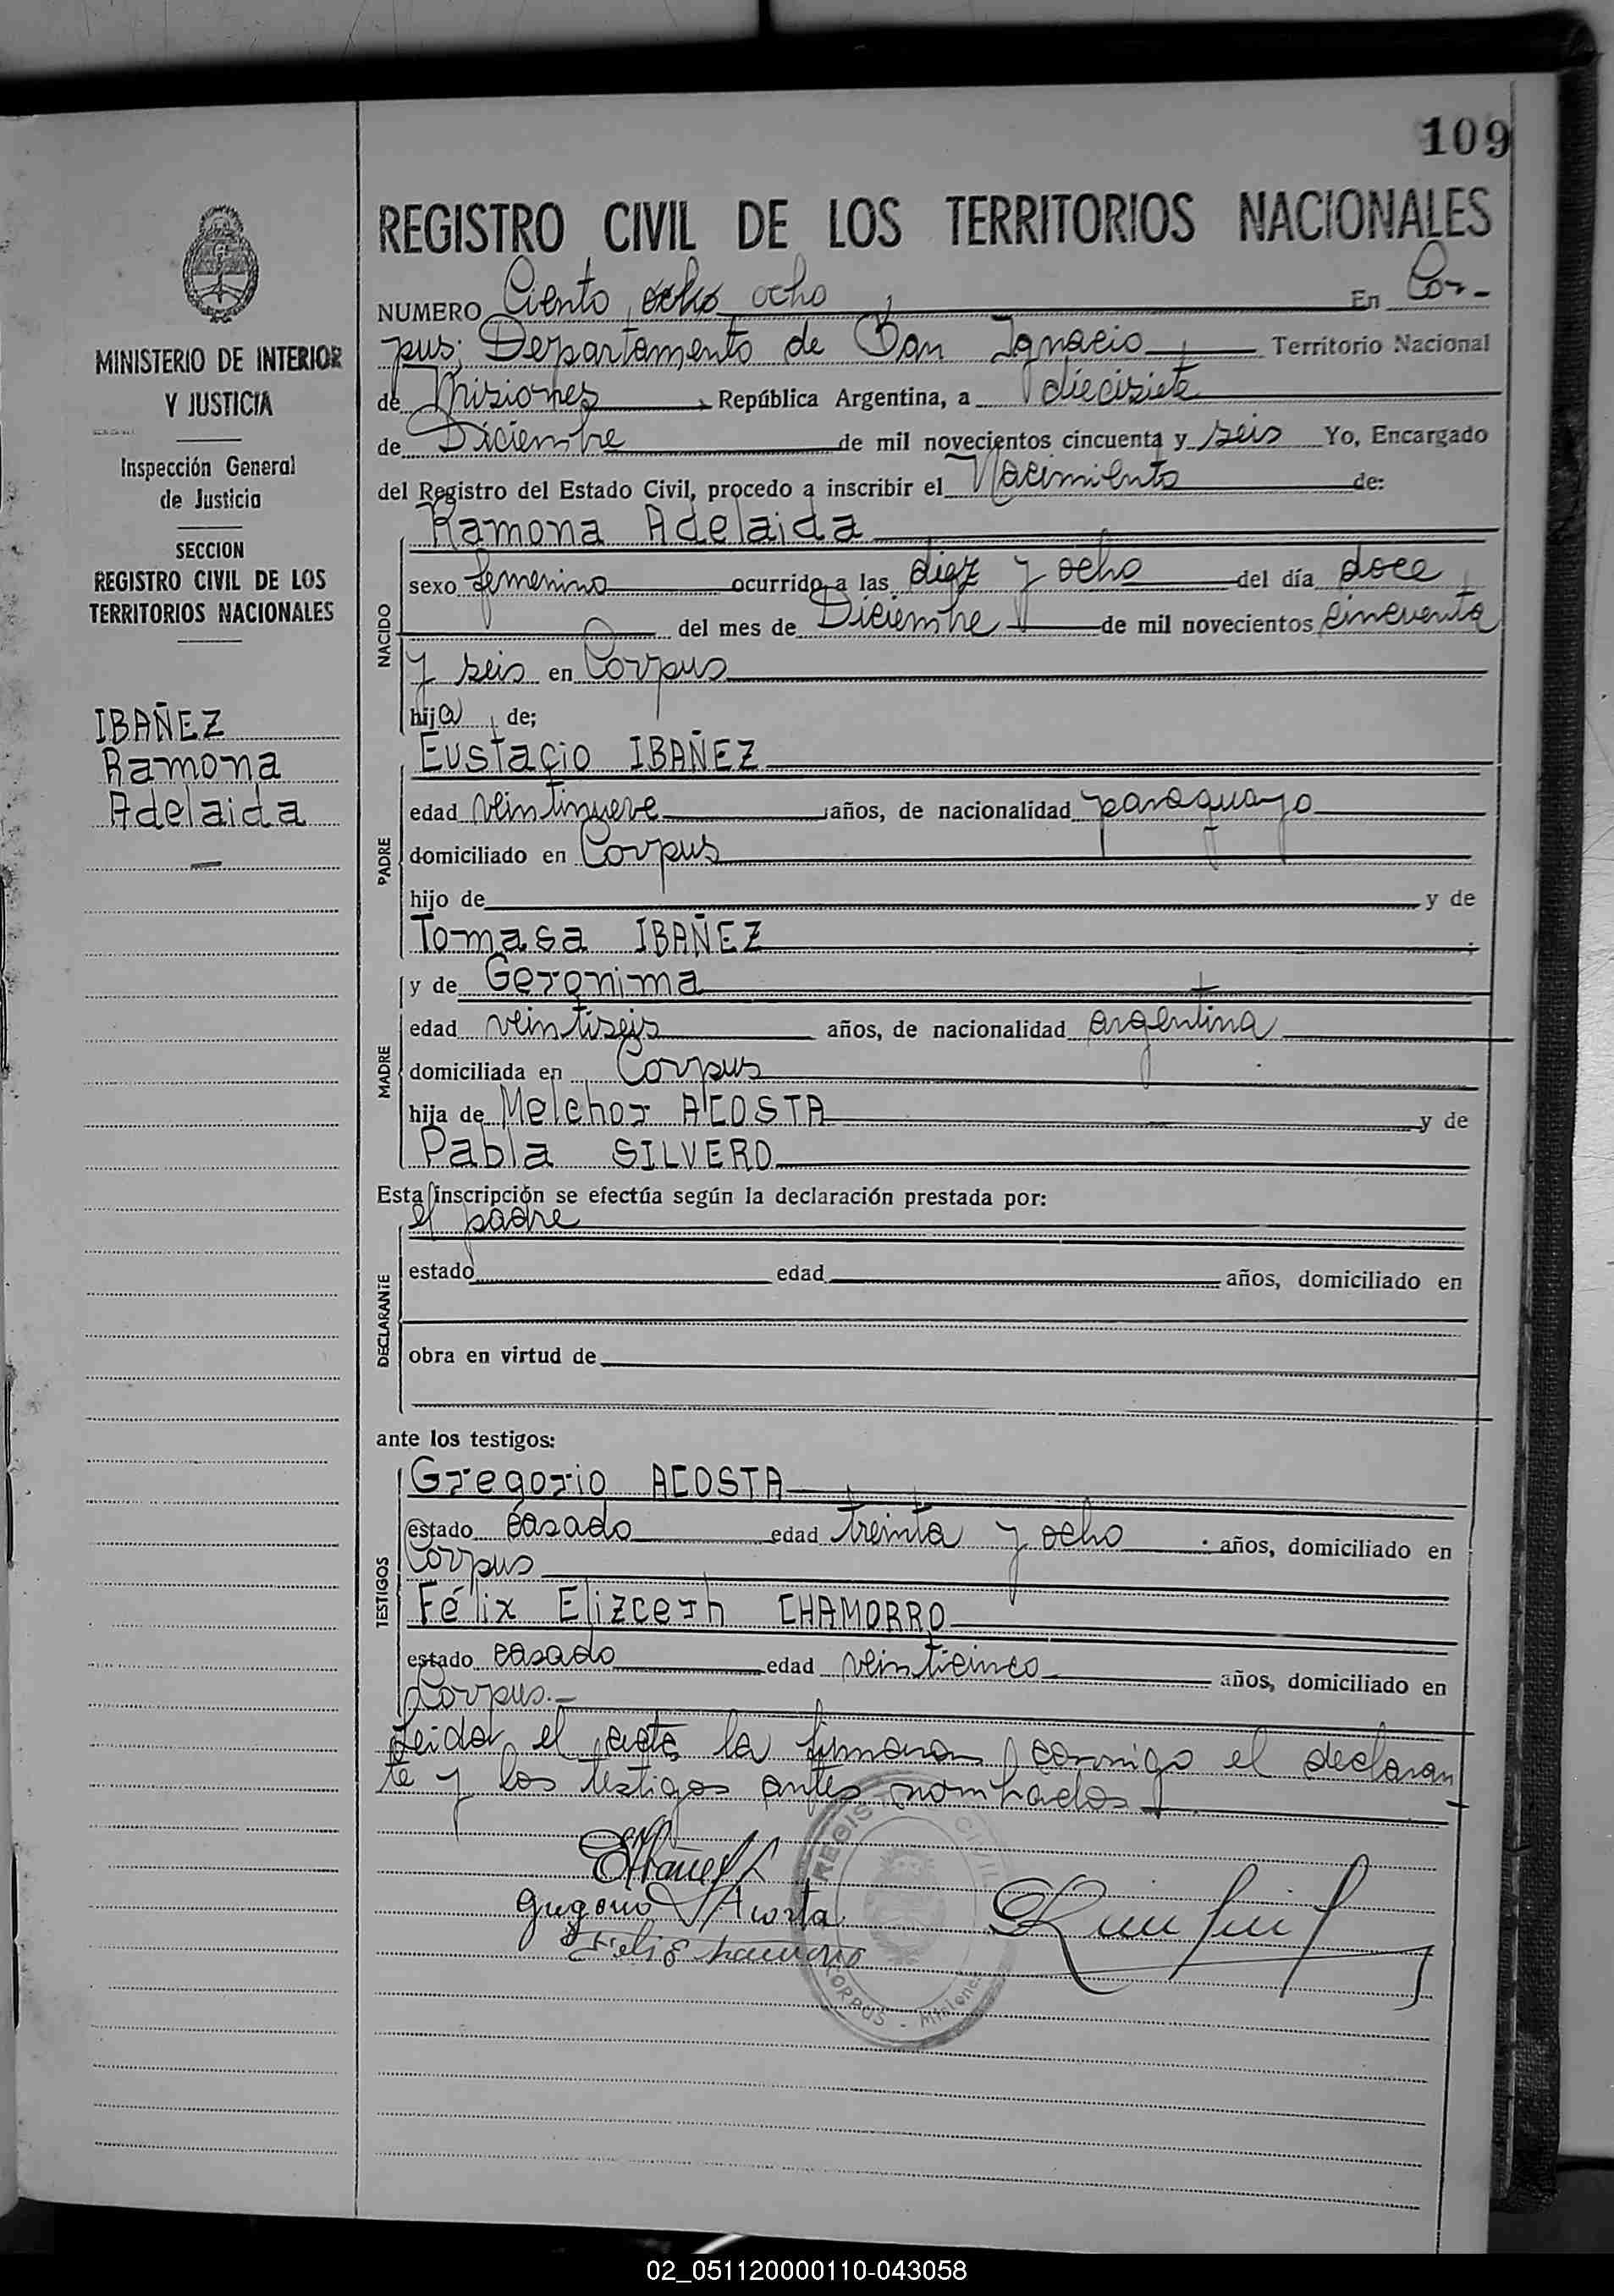 109
REGISTRO CIVIL DE LOS TERRITORIOS NACIONALES
NUMERO Ciento ocho ocho En Cor-
pus; Departamento de San Ignacio Territorio Nacional
de Misiones, República Argentina, a diecisiete
de Diciembre de mil novecientos cincuenta y seis Yo, Encargado
del Registro del Estado Civil, procedo a inscribir el Nacimiento de:
MINISTERIO DE INTERIOR
Y JUSTICIA
Inspección General
de Justicia
SECCION
REGISTRO CIVIL DE LOS
TERRITORIOS NACIONALES
IBAÑEZ
Ramona
Adelaida
NACIDO
Ramona Adelaida
sexo femenino ocurrido a las diez y ocho del día doce
del mes de Diciembre de mil novecientos cincuenta
y seis en Corpus
hija de;
PADRE
Eustacio IBAÑEZ
edad veintinueve años, de nacionalidad paraguayo
domiciliado en Corpus
hijo de y de
Tomasa IBAÑEZ
MADRE
y de Geronima
edad veintiseis años, de nacionalidad argentina
domiciliada en Corpus
hija de Melchor ACOSTA y de
Pabla SILVERO
Esta inscripción se efectúa según la declaración prestada por:
DECLARANTE
el padre
estado edad años, domiciliado en
obra en virtud de
ante los testigos:
TESTIGOS
Gregorio ACOSTA
estado casado edad treinta y ocho años, domiciliado en
Corpus
Félix Elizcerh CHAMORRO
estado casado edad veinticinco años, domiciliado en
Corpus.-
Leida el acta la firmaron conmigo el declaran
te y los testigos antes nombrados
EIbañez
Gregorio Acosta
Felix Chamorro
REGISTRO CIVIL
CORPUS - Misiones
02_051120000110-043058